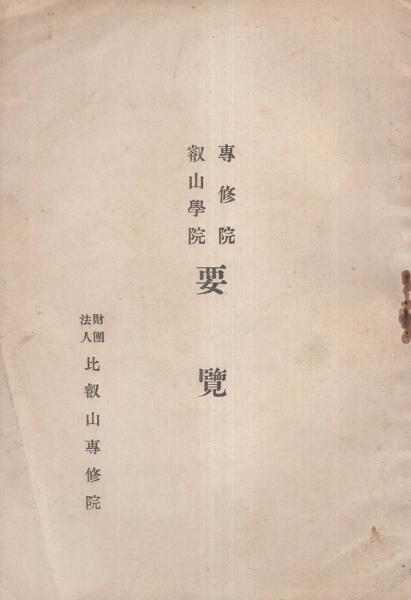 專修院
叡山學院
要覽
財團
法人
比叡山專修院